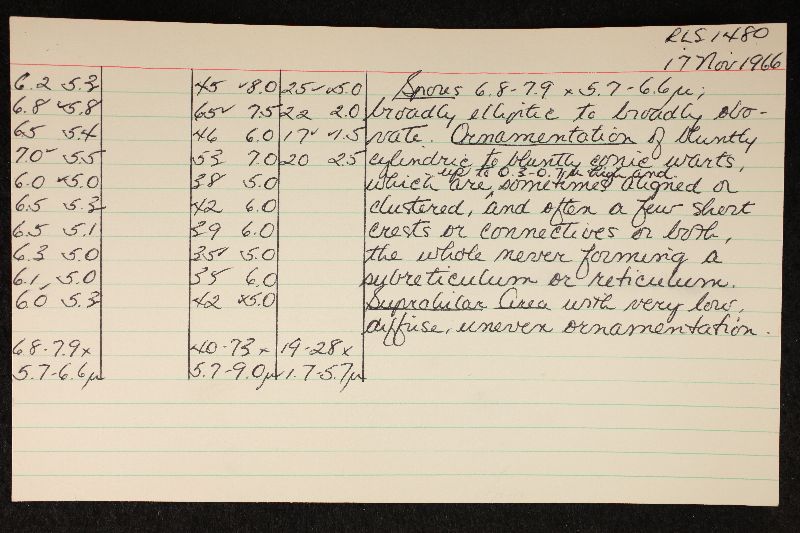 RLS 1480
17 Nov 1966
6.2 5.3 45 8.0 25 5.0 Spores 6.8-7.9 x 5.7-6.6µ;
6.8 5.8 65 7.5 22 2.0 broadly elliptic to broadly obo-
6.5 5.4 46 6.0 17 1.5 vate. Ornamentation of bluntly
7.0 5.5 53 7.0 20 2.5 cylindric to bluntly conic warts,
up to 0.3-0.7µ high and
6.0 5.0 38 5.0 which are sometimes aligned or
6.5 5.3 42 6.0 clustered, and often a few short
6.5 5.1 39 6.0 crests or connectives or both,
6.3 5.0 35 5.0 the whole never forming a
6.1 5.0 35 6.0 subreticulum or reticulum.
6.0 5.3 42 5.0 Suprahilar area with very low,
diffuse, uneven ornamentation.
6.8-7.9 x 40-73 x 19-28 x
5.7-6.6µ 5.7-9.0µ 1.7-5.7µ